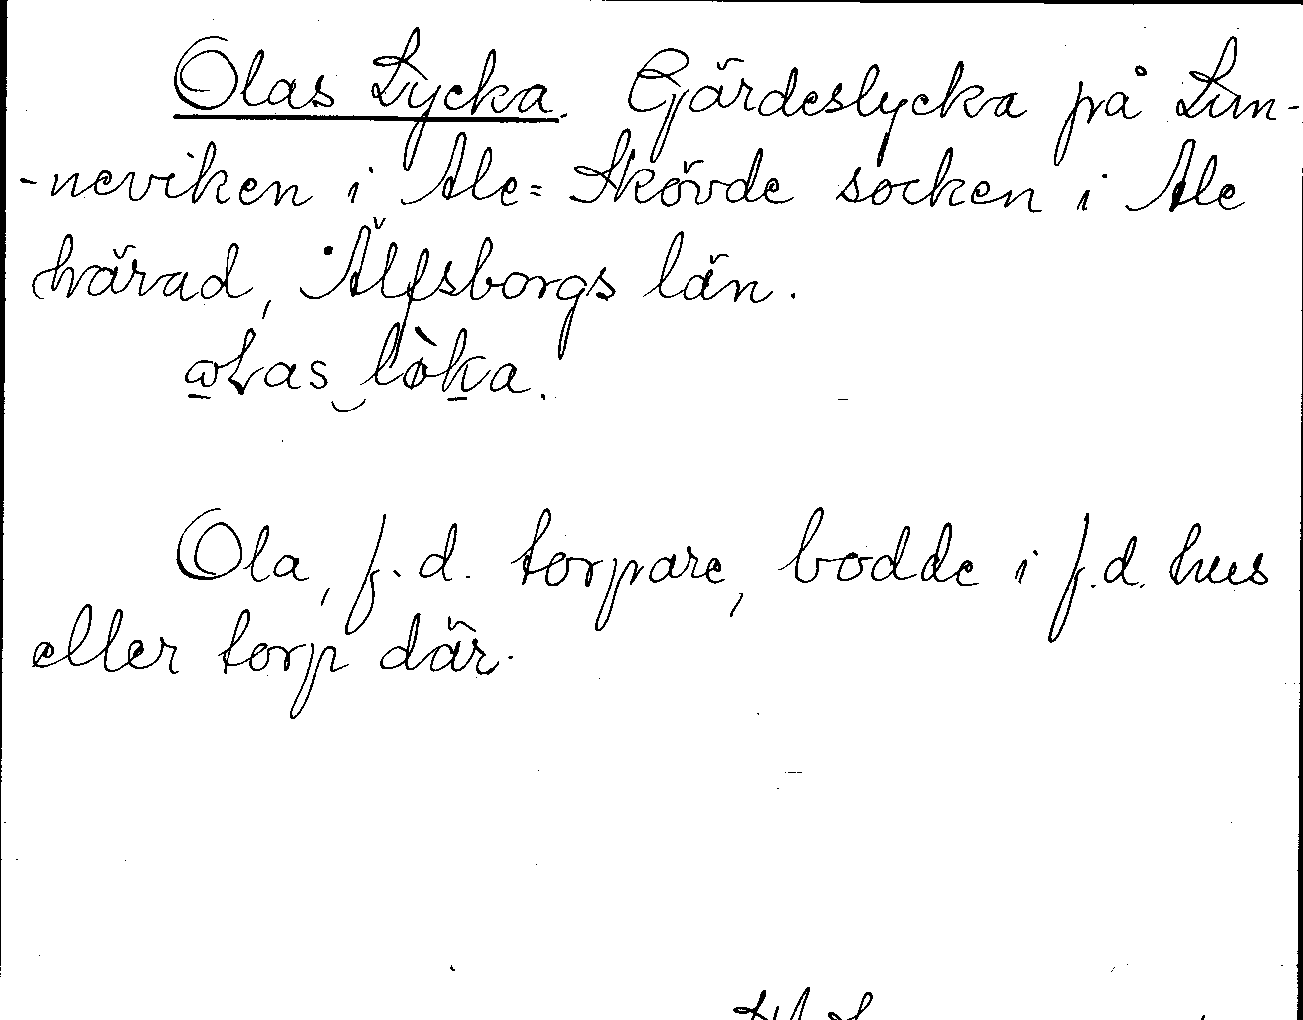 Olas Lycka. Gärdeslycka på Lun-
-neviken i Ale=Skövde socken i Ale
härad, Älfsborgs län.
Ola, f.d. torpare, bodde i f.d. hus
eller torp där.